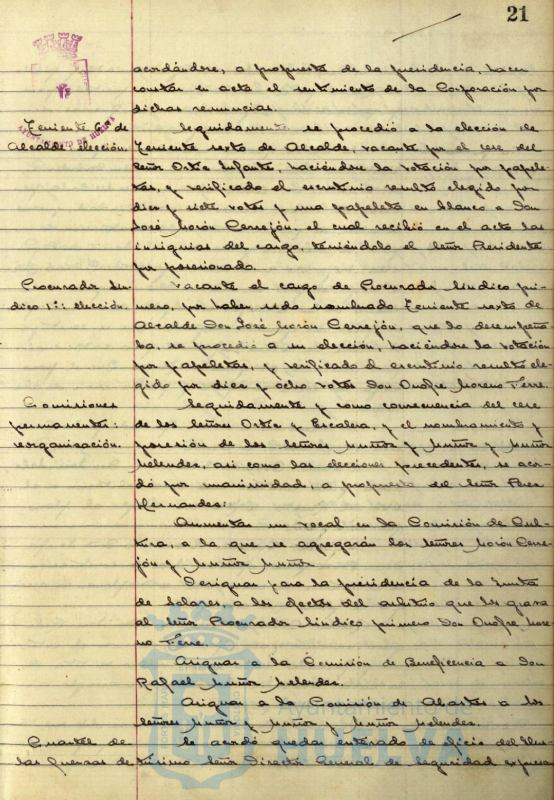 21
acordándose, a propuesta de la presidencia, hacer
constar en acta el sentimiento de la Corporación por
dichas renuncias.
Teniente 6º de
Alcalde elección.
Seguidamente se procedió a la elección de
Teniente sexto de Alcalde, vacante por el cese del
Señor Ortiz Infante, haciéndose la votación por papele-
tas, y verificado el escrutinio resultó elegido por
diez y siete votos y una papeleta en blanco a Don
José Morón Cerrejón, el cual recibió en el acto las
insignias del cargo, teniéndolo el Señor Presidente
por posesionado.
Procurador Sín-
dico 1º: elección.
Vacante el cargo de Procurador Síndico pri-
mero, por haber sido nombrado Teniente sexto de
Alcalde Don José Morón Cerrejón, que lo desempeña-
ba, se procedió a su elección, haciéndose la votación
por papeletas, y verificado el escrutinio resultó ele-
gido por diez y ocho votos Don Onofre Moreno Ferre.
Comisiones
permanentes:
reorganización.
Seguidamente y como consecuencia del cese
de los Señores Ortiz y Escalera, y el nombramiento y
posesión de los Señores Muñoz y Muñoz y Muñoz
Melendez, asi como las elecciones precedentes, se acor-
dó por unanimidad, a propuesta del Señor Perez
Hernandez:
Aumentar un vocal en la Comisión de Cul-
tura, a la que se agregarán los Señores Morón Cerre-
jón y Muñoz Muñoz
Designar para la presidencia de la Junta
de Solares, a los efectos del arbitrio que los grava
al Señor Procurador Síndico primero Don Onofre More-
no Ferre.
Asignar a la Comisión de Beneficencia a Don
Rafael Muñoz Melendez.
Asignar a la Comisión de Abastos a los
Señores Muñoz y Muñoz y Muñoz Melendez.
Cuartel de
las fuerzas de
Se acordó quedar enterado de oficio del Ilus-
trísimo Señor Director General de Seguridad expresa
Ayuntamiento de
HUELVA